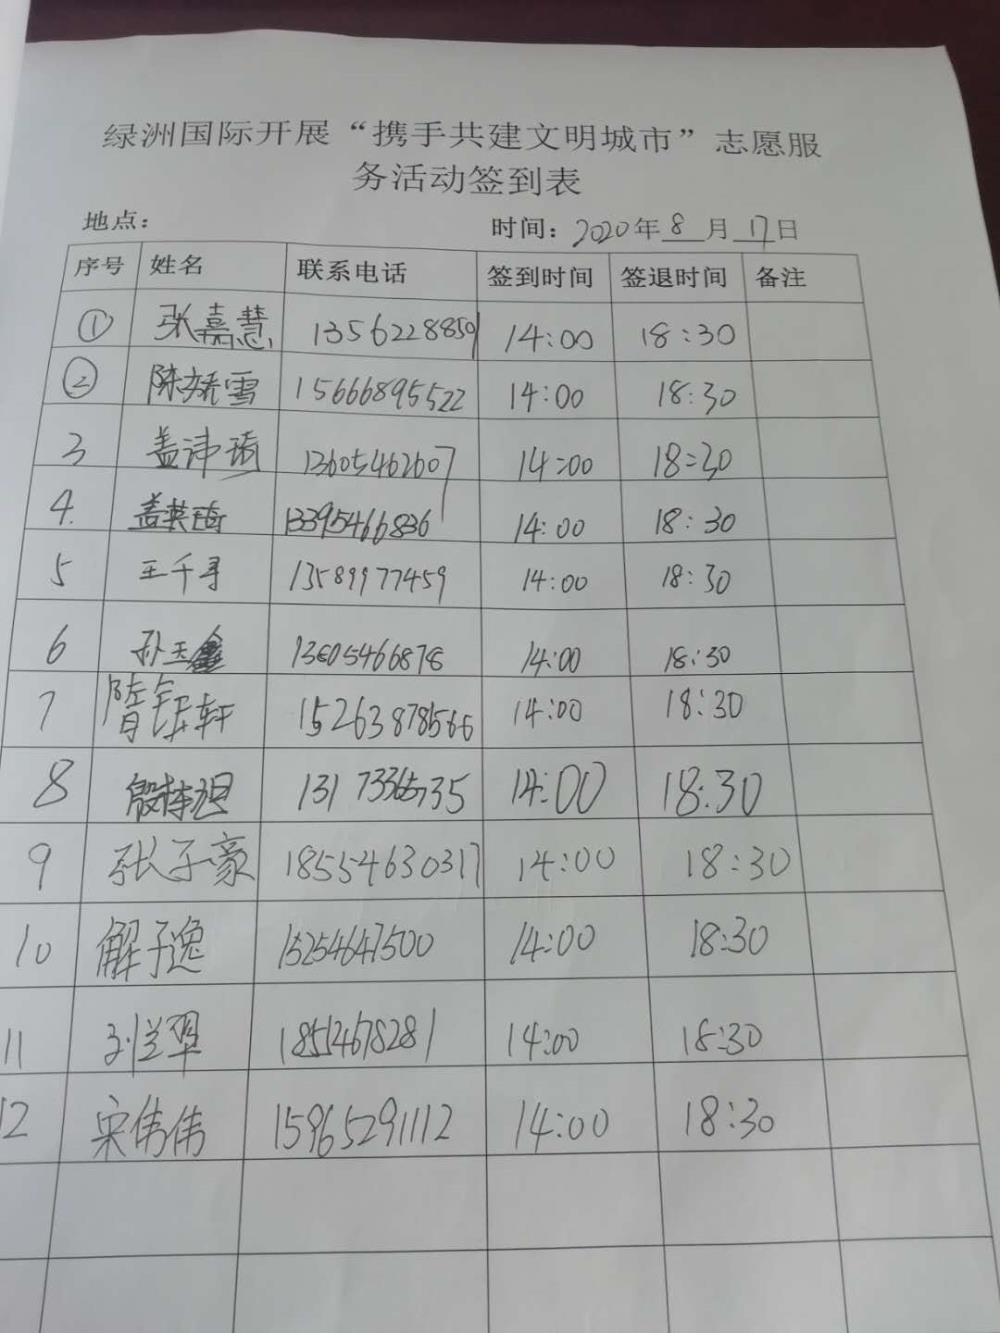 绿洲国际开展“携手共建文明城市”志愿服
务活动签到表
地点： 时间：2020年8月17日
序号 姓名 联系电话 签到时间 签退时间 备注
① 张嘉慧 13562288509 14:00 18:30
② 陈娇雪 15666895522 14:00 18:30
3 盖沛琦 13605462607 14:00 18:30
4. 盖英琦 13395466836 14:00 18:30
5 王千寻 13589977459 14:00 18:30
6 孙玉鑫 13605466878 14:00 18:30
7 隋钰轩 15263878566 14:00 18:30
8 殷梓 14:00 18:30
9 张子豪 18554630317 14:00 18:30
10 解子逸 15254647500 14:00 18:30
11 刘兰翠 14:00 18:30
12 宋伟伟 15965291112 14:00 18:30